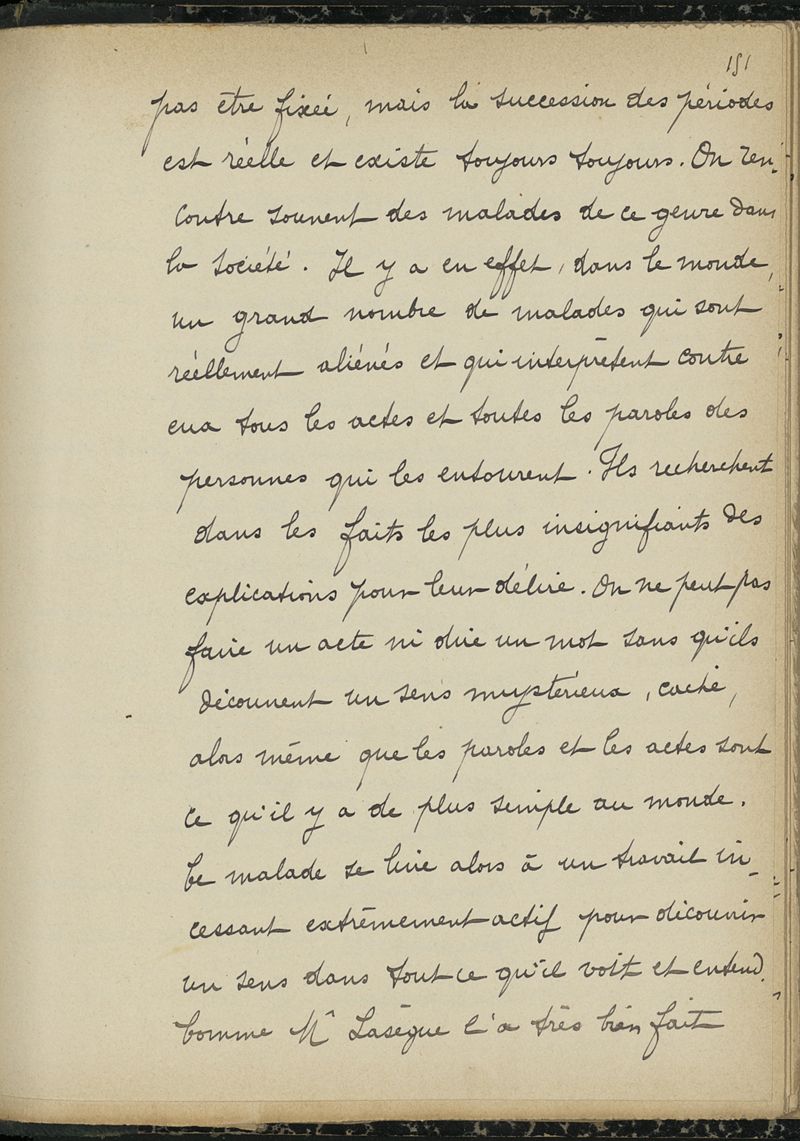 151
pas être fixée, mais la succession des périodes
est réelle et existe toujours toujours. On ren-
contre souvent des malades de ce genre dans
la société. Il y a en effet, dans le monde,
un grand nombre de malades qui sont
réellement aliénés et qui interprètent contre
eux tous les actes et toutes les paroles des
personnes qui les entourent. Ils recherchent
dans les faits les plus insignifiants des
explications pour leur délire. On ne peut pas
faire un acte ni dire un mot sans qu'ils
découvrent un sens mystérieux, caché,
alors même que les paroles et les actes sont
ce qu'il y a de plus simple au monde.
Le malade se livre alors à un travail in-
cessant extrêmement actif pour découvrir
un sens dans tout ce qu'il voit et entend.
Comme Mr Lasègue l'a très bien fait